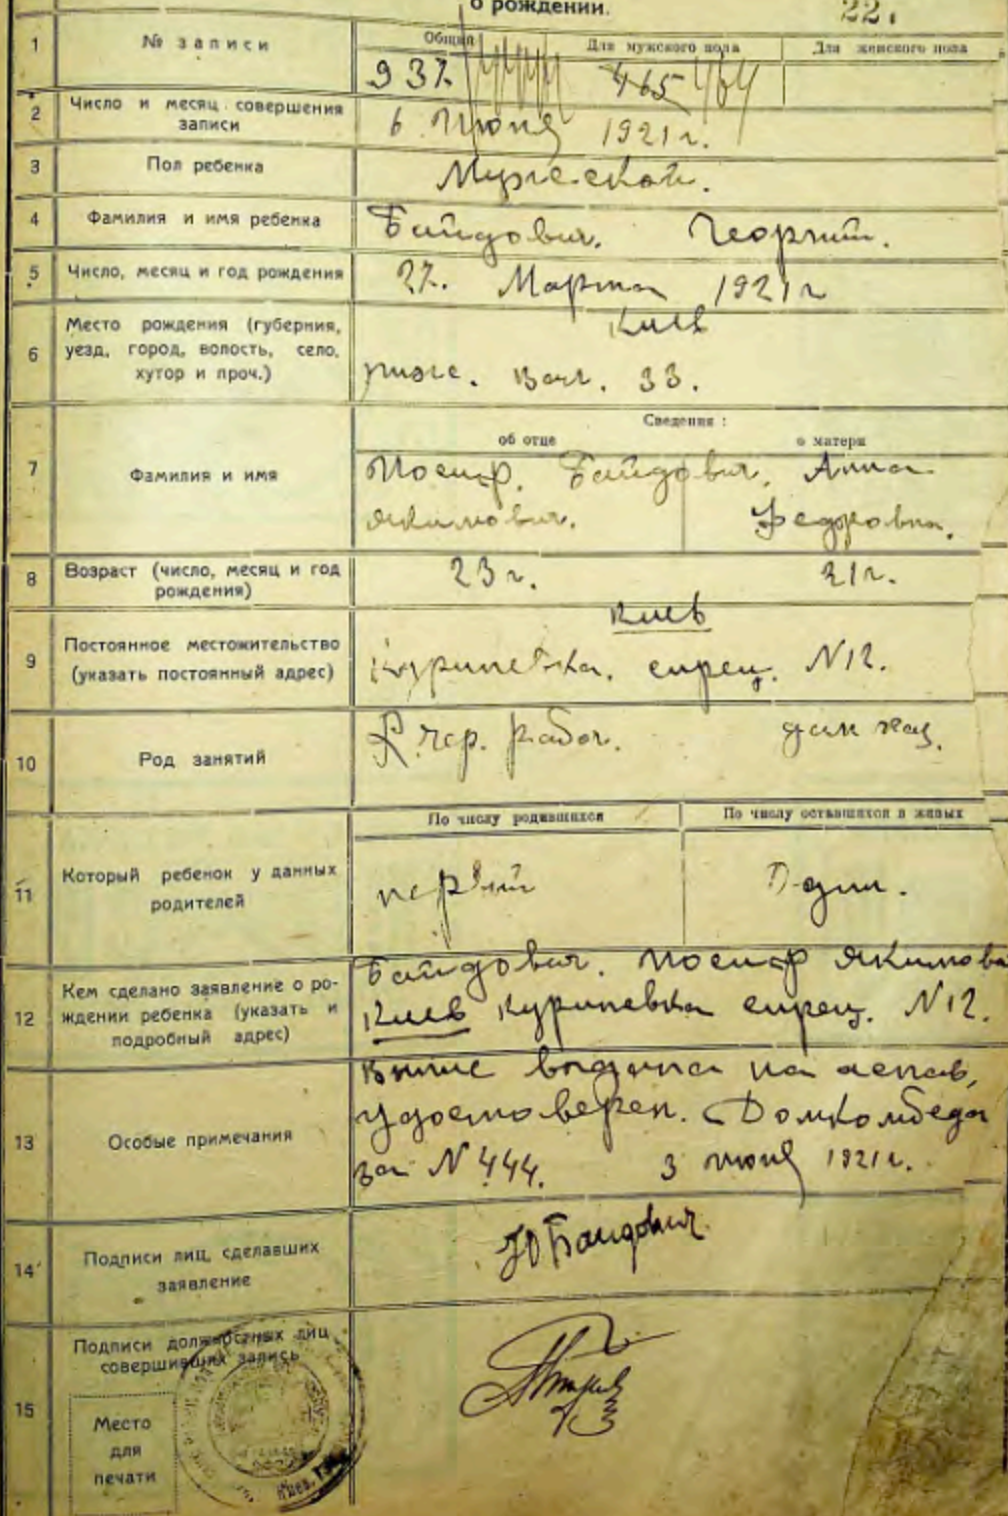 о рождении.
22.
1 № записи Общий Для мужского пола Для женского пола
937. 465 464
2 Число и месяц совершения записи
6 Июня 1921 г.
3 Пол ребенка Мужеской.
4 Фамилия и имя ребенка Байдович. Георгий.
5 Число, месяц и год рождения 27. Марта 1921 г
6 Место рождения (губерния, уезд, город, волость, село, хутор и проч.)
Киев
33.
Сведения:
об отце о матери
7 Фамилия и имя
Иосиф. Байдович. Анна
Якимович. Федоровна.
8 Возраст (число, месяц и год рождения) 23 г. 21 г.
9 Постоянное местожительство (указать постоянный адрес)
Киев
Куриневка. сирец. N 12.
10 Род занятий
чер. рабоч. дом хоз.
По числу родившихся По числу оставшихся в живых
11 Который ребенок у данных родителей
первий Один.
12 Кем сделано заявление о рождении ребенка (указать и подробный адрес)
Байдович. Иосиф Якимови
Киев Куриневка сирец. N 12.
13 Особые примечания
удостоверен. Домкомбеда
за N 444. 3 июня 1921 г.
14 Подписи лиц, сделавших заявление
Байдович.
15 Подписи должностных лиц совершивших запись
Место
для
печати